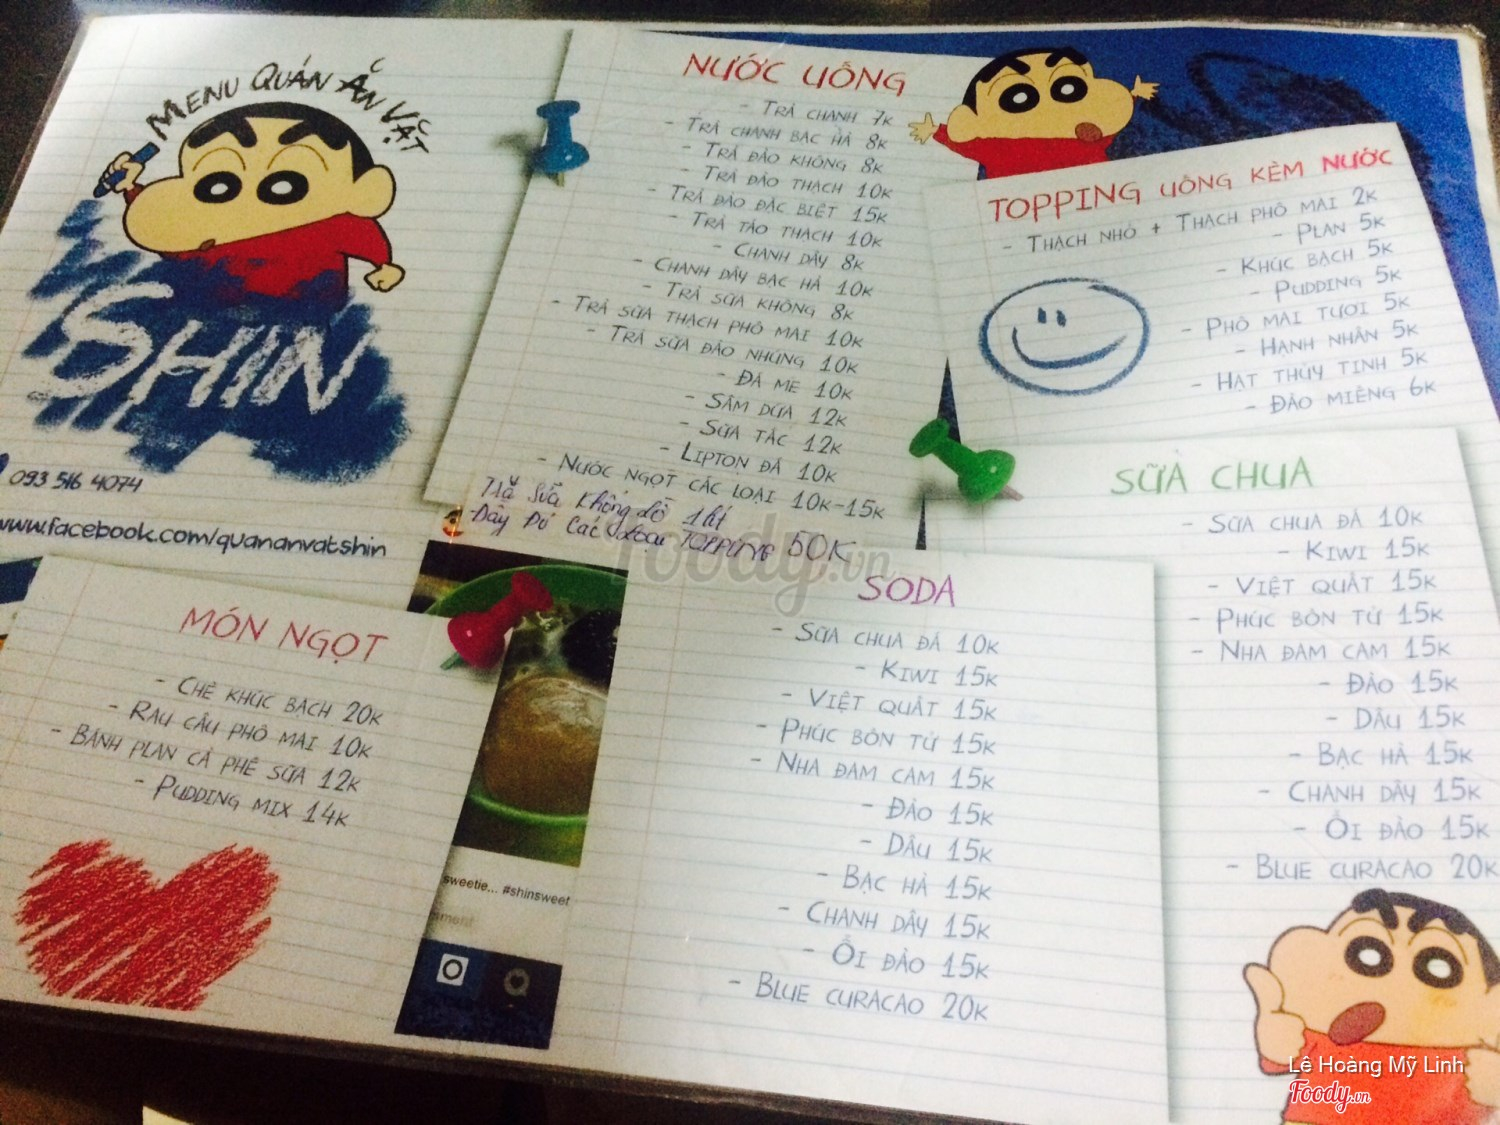 MENU QUÁN ĂN VẶT
SHIN
093 516 4074
www.facebook.com/quananvatshin
NƯỚC UỐNG
- TRÀ CHANH 7K
- TRÀ CHANH BẠC HÀ 8K
- TRÀ ĐÀO KHÔNG 8K
- TRÀ ĐÀO THẠCH 10K
- TRÀ ĐÀO ĐẶC BIỆT 15K
- TRÀ TÁO THẠCH 10K
- CHANH DÂY 8K
- CHANH DÂY BẠC HÀ 10K
- TRÀ SỮA KHÔNG 8K
- TRÀ SỮA THẠCH PHÔ MAI 10K
- TRÀ SỮA ĐÀO NHÚNG 10K
- ĐÁ ME 10K
- SÂM DỨA 12K
- SỮA TẮC 12K
- LIPTON ĐÁ 10K
- NƯỚC NGỌT CÁC LOẠI 10K-15K
Trà Sữa Khổng Lồ 1 lít
Đầy Đủ Các Loại TOPPING 50K
TOPPING UỐNG KÈM NƯỚC
- THẠCH NHỎ + THẠCH PHÔ MAI 2K
- PLAN 5K
- KHÚC BẠCH 5K
- PUDDING 5K
- PHÔ MAI TƯƠI 5K
- HẠNH NHÂN 5K
- HẠT THỦY TINH 5K
- ĐÀO MIẾNG 6K
SỮA CHUA
- SỮA CHUA ĐÁ 10K
- KIWI 15K
- VIỆT QUẤT 15K
- PHÚC BỒN TỬ 15K
- NHA ĐAM CAM 15K
- ĐÀO 15K
- DÂU 15K
- BẠC HÀ 15K
- CHANH DÂY 15K
- ỔI ĐÀO 15K
- BLUE CURACAO 20K
MÓN NGỌT
- CHÈ KHÚC BẠCH 20K
- RAU CÂU PHÔ MAI 10K
- BÁNH PLAN CÀ PHÊ SỮA 12K
- PUDDING MIX 14K
sweetie... #shinsweet
SODA
- SỮA CHUA ĐÁ 10K
- KIWI 15K
- VIỆT QUẤT 15K
- PHÚC BỒN TỬ 15K
- NHA ĐAM CAM 15K
- ĐÀO 15K
- DÂU 15K
- BẠC HÀ 15K
- CHANH DÂY 15K
- ỔI ĐÀO 15K
- BLUE CURACAO 20K
Foody.vn
Lê Hoàng Mỹ Linh
Foody.vn